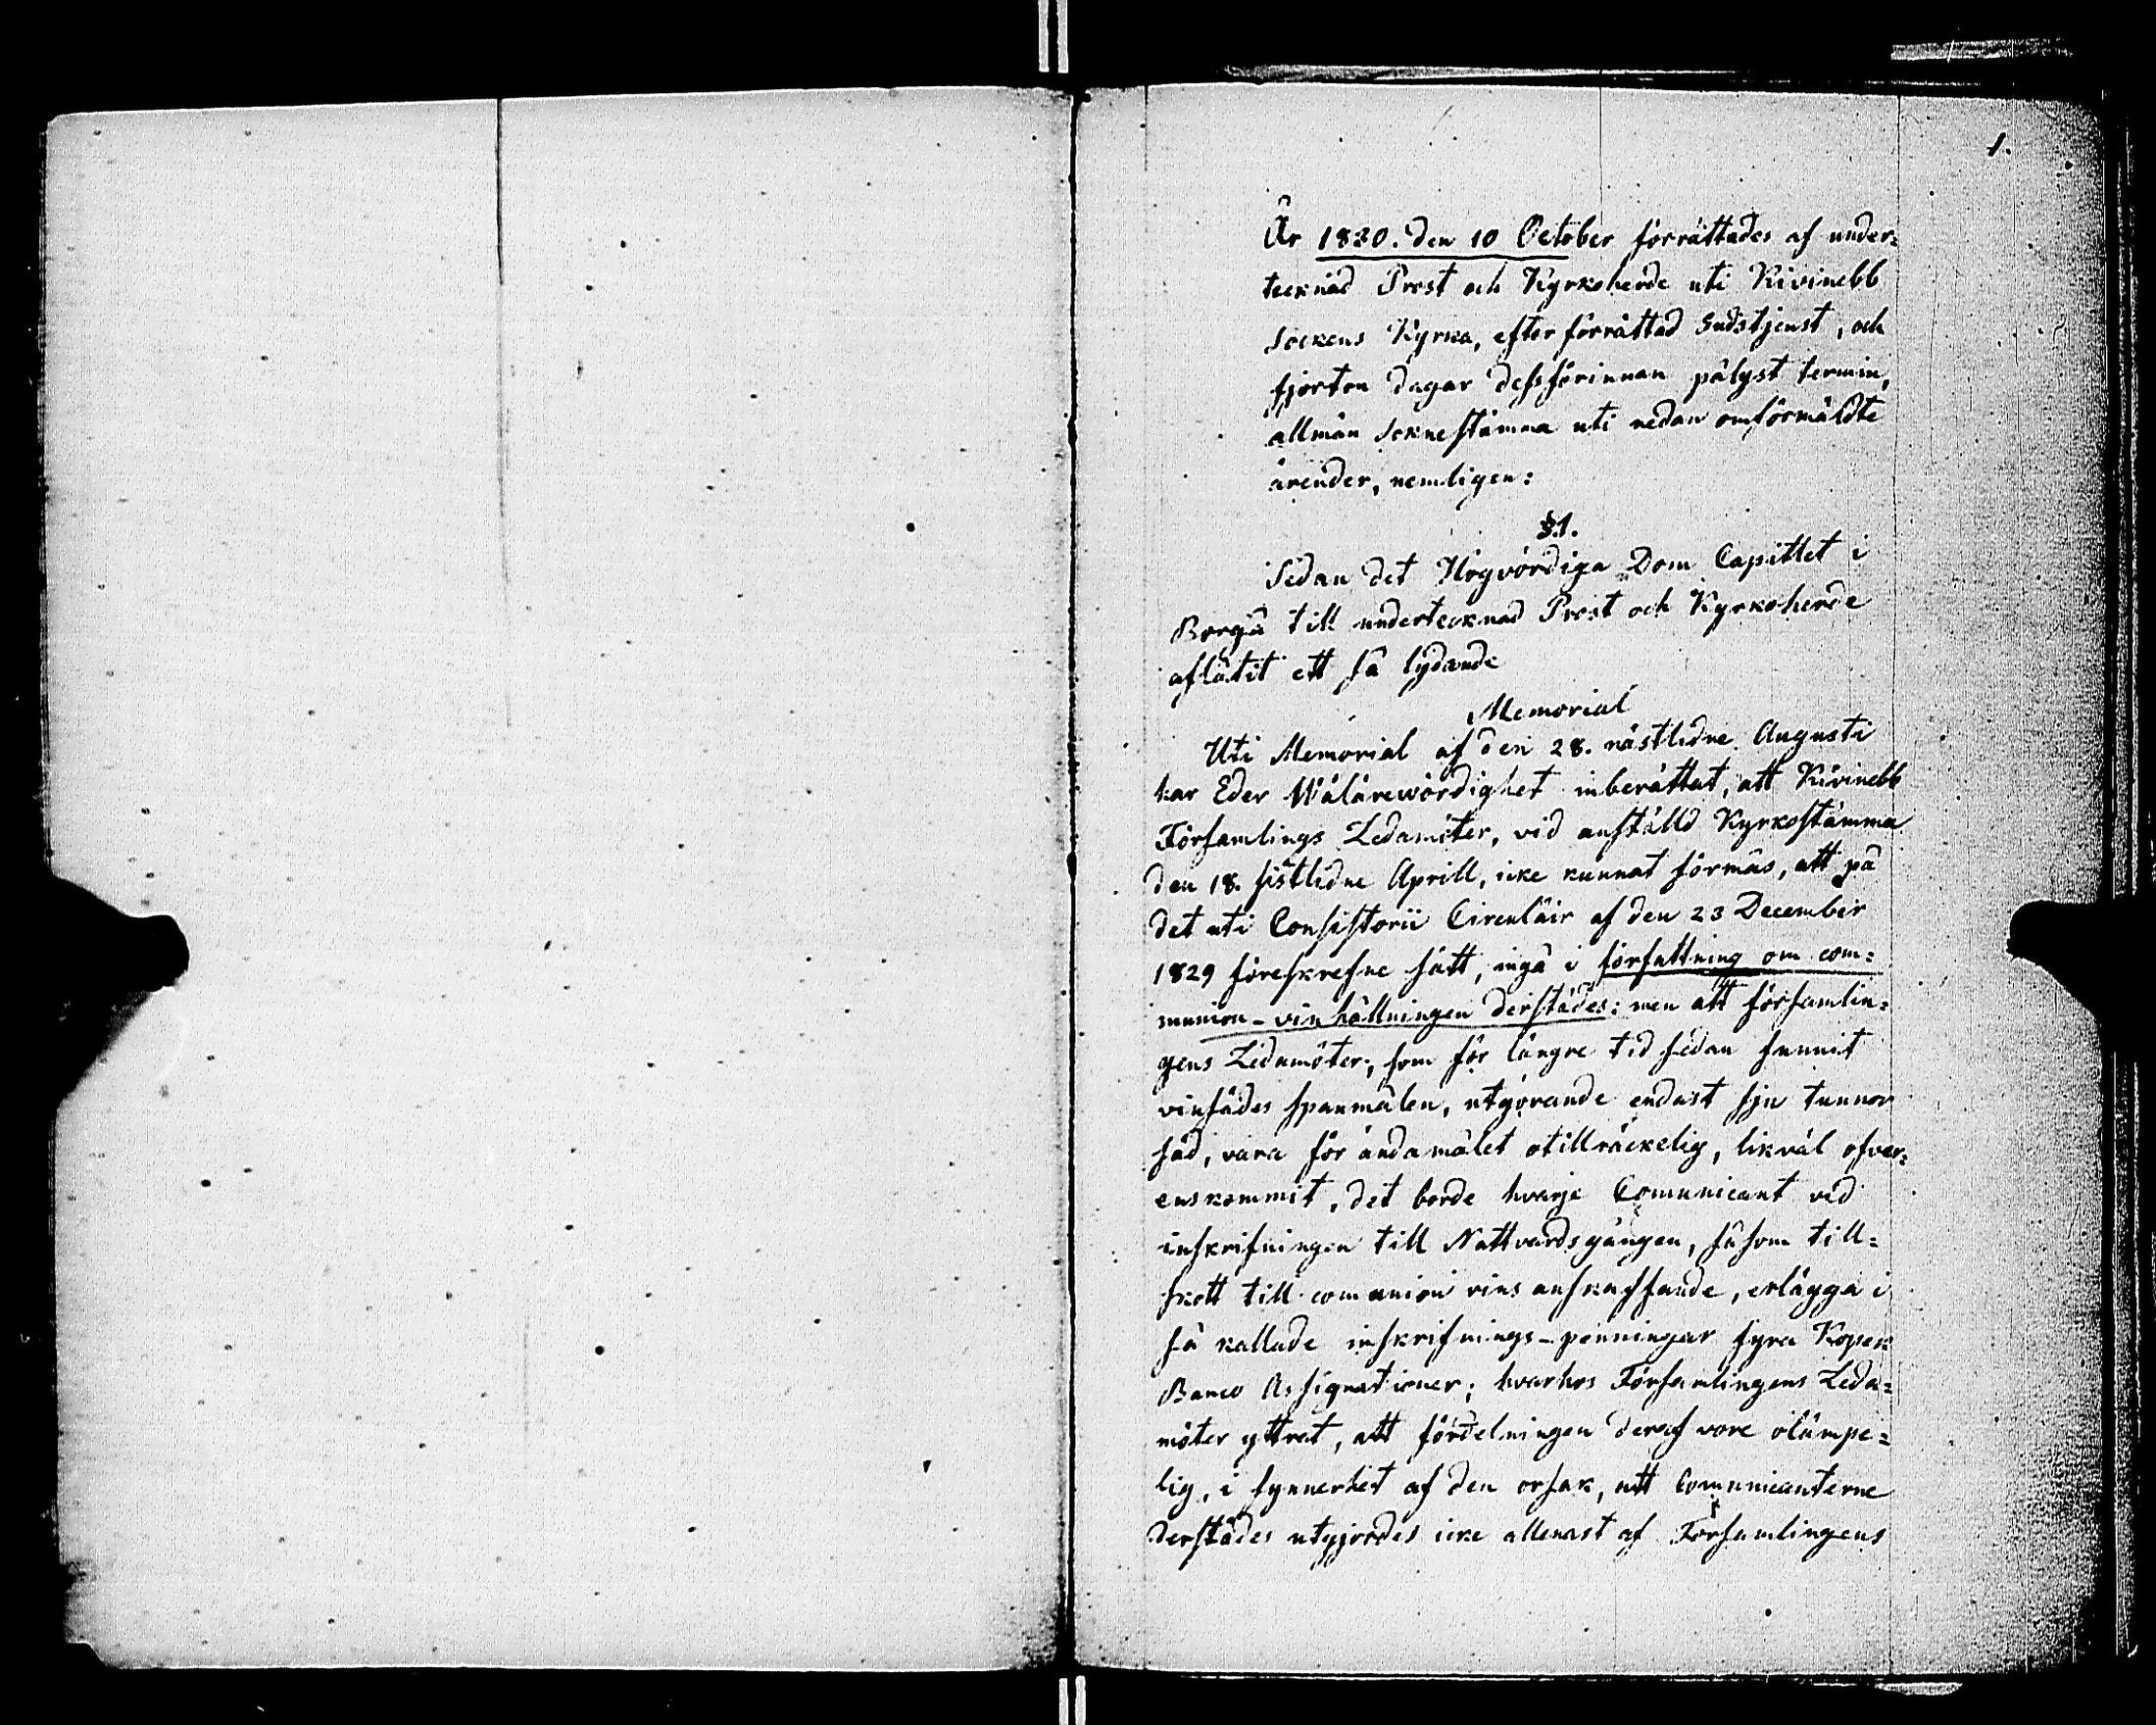 1.
År 1830. den 10 October förrättades af under=
tecknad Prost och Kyrkoherde uti Kivinebb
Sockens Kyrka, efter förrättad Gudstjenst, och
fjorton dagar dessförinnan pålyst termin,
allmän Sockne stämma uti nedan omförmäldte
ärender, nemligen:
§1.
Sedan det Högvördiga Dom Capitlet i
Borgå till undertecknad Prost och Kyrkoherde
aflåtit ett så lydande
Memorial
Uti Memorial af den 28. nästlidne Augusti
har Eder Wälärewördighet inberättat, att Kivinebb
Församlings Ledamöter, vid anställd Kyrkostämma
den 18. sistlidne Aprill, icke kunnat förmås, att på
det uti Consistorii Circulair af den 23 December
1829 föreskrefne sätt, ingå i författning om com=
munion-vinhållningen derstädes: men att församlin=
gens Ledamöter, som för längre tid sedan funnit
vinsädes spanmålen, utgörande endast sju tunnor
säd, vara för ändamålet otillräckelig, likväl öfver=
enskommit, det borde hvarje Communicant vid
inskrifningen till Nattvardsgången, såsom till=
skott till communion vins anskaffande, erlägga i
så kallade inskrifnings-penningar fyra Kopek
Banco Assignationer; hvarhos Församlingens Leda=
möter yttrat, att fördelningen deraf vore olämpe=
lig, i synnerhet af den orsak, att Communicanterne
derstädes utgjordes icke allenast af Församlingens